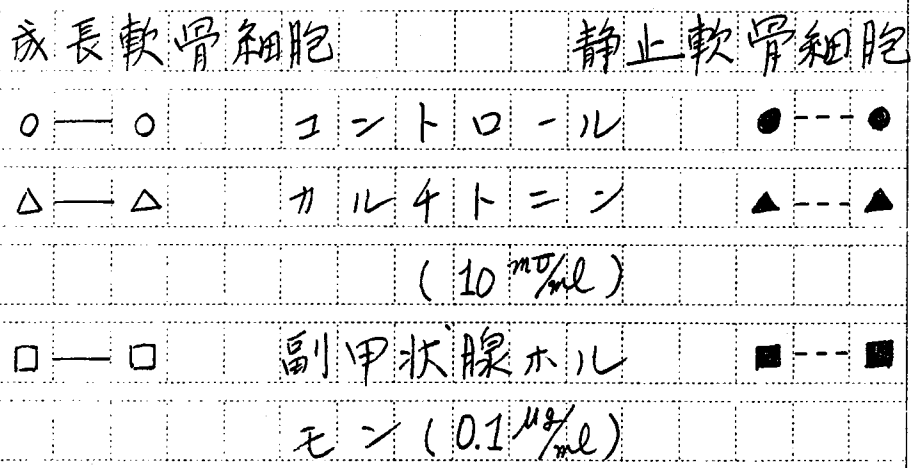 成長軟骨細胞 静止軟骨細胞
○—○ コントロール ●---●
△—△ カルチトニン ▲---▲
(10 mU/ml)
□—□ 副甲状腺ホル ■---■
モン(0.1 μg/ml)